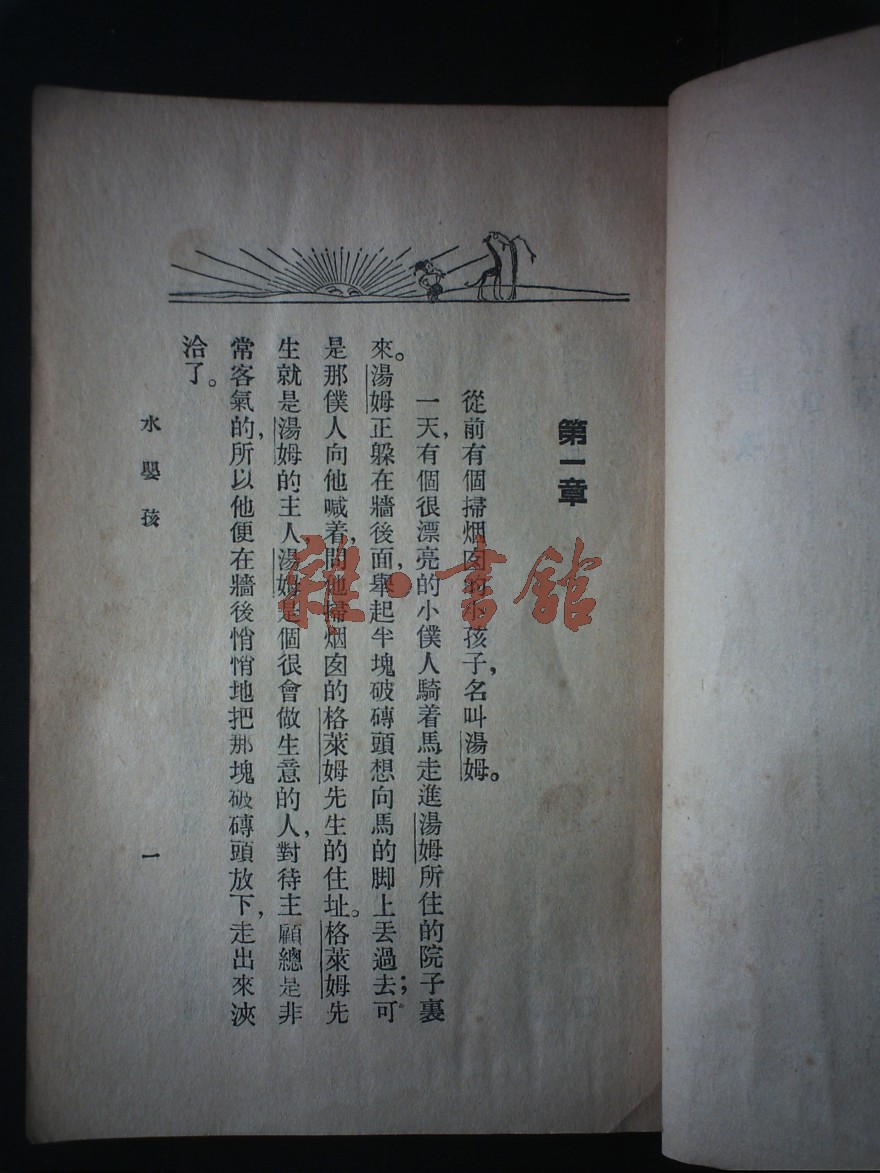 第一章
從前有個掃烟囱的小孩子，名叫湯姆。
一天，有個很漂亮的小僕人騎着馬走進湯姆所住的院子裏
來。湯姆正躲在牆後面，舉起半塊破磚頭想向馬的脚上丢過去；可
是那僕人向他喊着，問他掃烟囱的格萊姆先生的住址。格萊姆先
生就是湯姆的主人，湯姆是個很會做生意的人，對待主顧總是非
常客氣的，所以他便在牆後悄悄地把那塊破磚頭放下，走出來浹
洽了。
水嬰孩
一
雜·書館